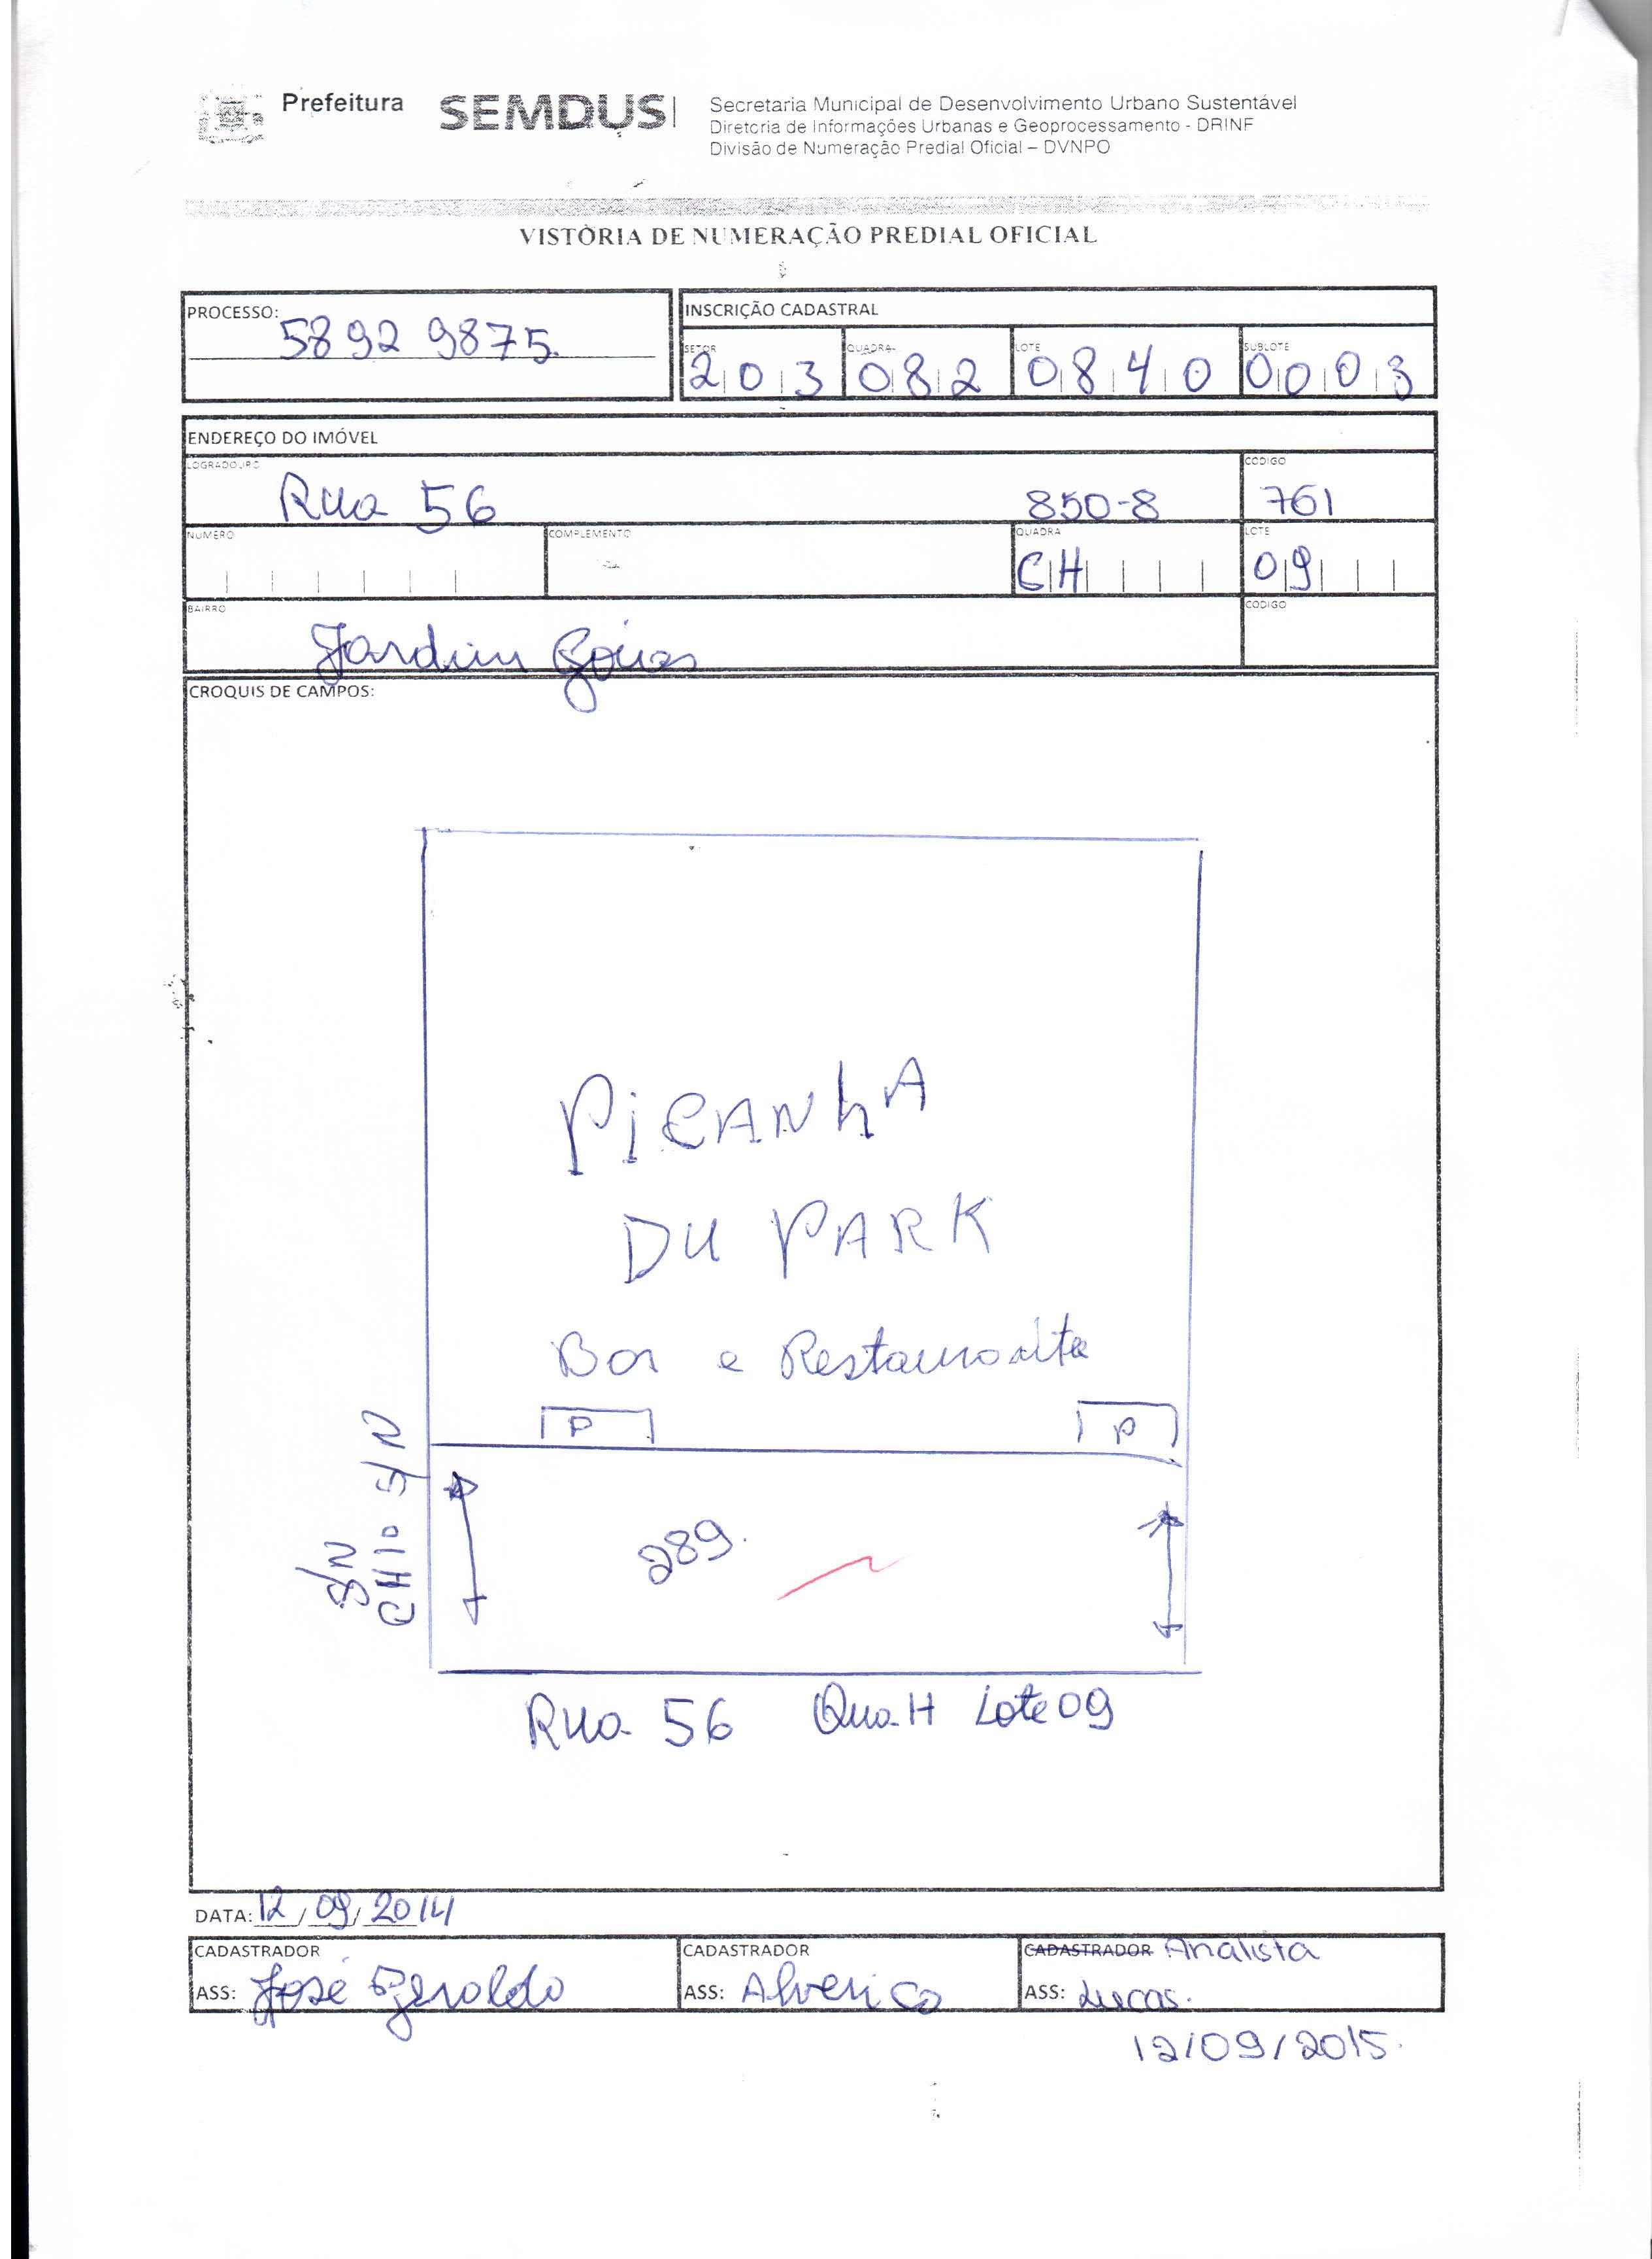 Prefeitura SEMDUS
Secretaria Municipal de Desenvolvimento Urbano Sustentável
Diretoria de Informações Urbanas e Geoprocessamento - DRINF
Divisão de Numeração Predial Oficial – DVNPO
VISTORIA DE NUMERAÇÃO PREDIAL OFICIAL
PROCESSO: 5892 9875.
INSCRIÇÃO CADASTRAL
SETOR QUADRA LOTE SUBLOTE
203 082 0840 0003
ENDEREÇO DO IMÓVEL
LOGRADOURO CODIGO
Rua 56 850-8 761
NUMERO COMPLEMENTO QUADRA LOTE
CH 09
BAIRRO CODIGO
Jardim Goias
CROQUIS DE CAMPOS:
PiCANhA
DU PARK
Bar e Restaurante
P P
S/N
CH10 S/N
289.
Rua 56 Qua-H Lote 09
DATA: 12/09/2014
CADASTRADOR CADASTRADOR CADASTRADOR Analista
ASS: José Geraldo ASS: Alverico ASS: Lucas.
12/09/2015.